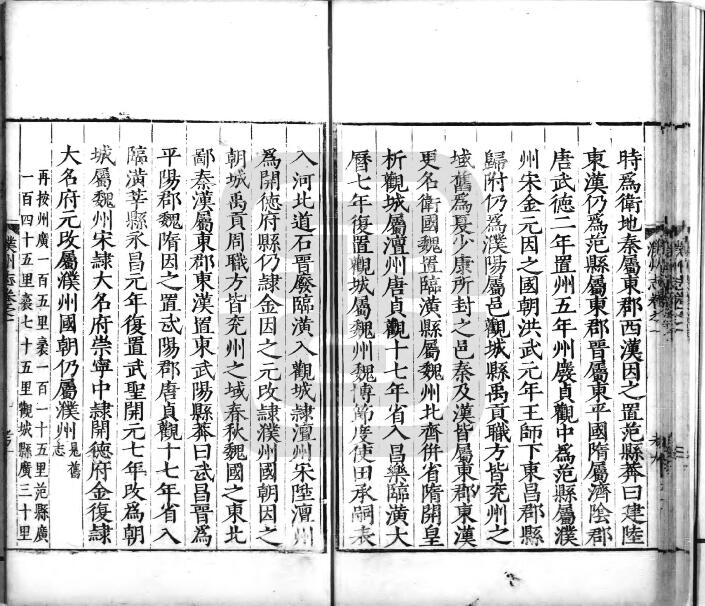 時為衛地秦屬東郡西漢因之置范縣莽曰建陸
東漢仍為范縣屬東郡晉屬東平國隋屬濟陰郡
唐武德二年置州五年州廢貞觀中為范縣屬濮
州宋金元因之國朝洪武元年王師下東昌郡縣
歸附仍為濮陽屬邑觀城縣禹貢職方皆兗州之
域舊為夏少康所封之邑秦及漢皆屬東郡東漢
更名衛國魏置臨潢縣屬魏州北齊併省隋開皇
析觀城屬澶州唐貞觀十七年省入昌樂臨潢大
曆七年復置觀城屬魏州魏博節度使田承嗣表
入河北道石晉廢臨潢入觀城隸澶州宋陞澶州
為開德府縣仍隸金因之元改隸濮州國朝因之
朝城禹貢周職方皆兗州之域春秋魏國之東北
鄙秦漢屬東郡東漢置東武陽縣莽曰武昌晉為
平陽郡魏隋因之置武陽郡唐貞觀十七年省入
臨潢莘縣永昌元年復置武聖開元七年改為朝
城屬魏州宋隸大名府崇寧中隸開德府金復隸
大名府元改屬濮州國朝仍屬濮州見舊志
再按州廣一百五里袤一百一十五里范縣廣
一百四十五里袤七十五里觀城縣廣三十里
濮州志卷之一